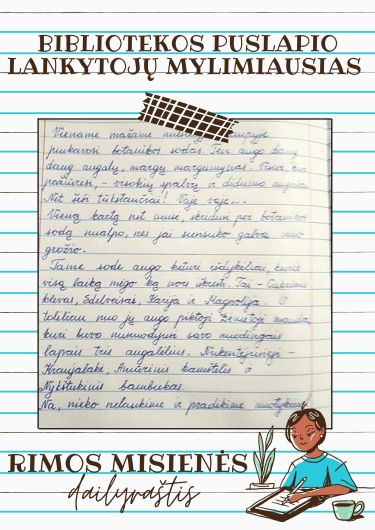 BIBLIOTEKOS PUSLAPIO
LANKYTOJŲ MYLIMIAUSIAS
Viename mažame
puikavosi botanikos sodas. Ten augo daug
daug augalų, margų margumynas. Visur, kur
pažiūrėsi, – visokių spalvų ir didumo augalai.
Net šeši tūkstančiai! Vaje vaje...
Vieną kartą net musė, skrisdama per botanikos
sodą nualpo, nes jai susisuko galva nuo
grožio.
Tame sode augo keturi išdykėliai, kurie
visą laiką mėgo ką nors iškrėsti. Tai – Cukrinis
klevas, Edelveisas, Karija ir Magnolija. O
toliau nuo jų augo piktoji
kuri buvo nunuodijusi savo nuodingais
lapais tris augalėlius. Nukentėjusieji –
Kraujalakė, Amūrinis kamštenis ir
Nykštukinis bambukas.
Na, nieko nelaukime ir pradėkime
RIMOS MISIENĖS
dailyraštis